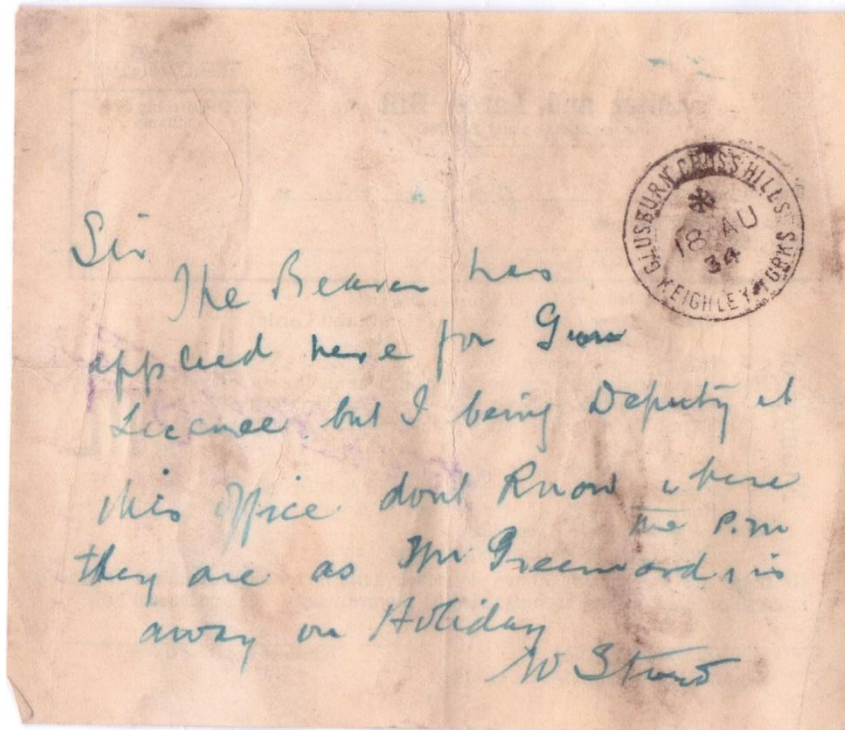 GLUSBURN CROSS HILLS
* 18 AU 34
KEIGHLEY YORKS
Sir
The Bearer has
applied here for Gun
Licence but I being Deputy at
this office dont Know where
the P.M
they are as Mr Greenwood, is
away on Holiday
W